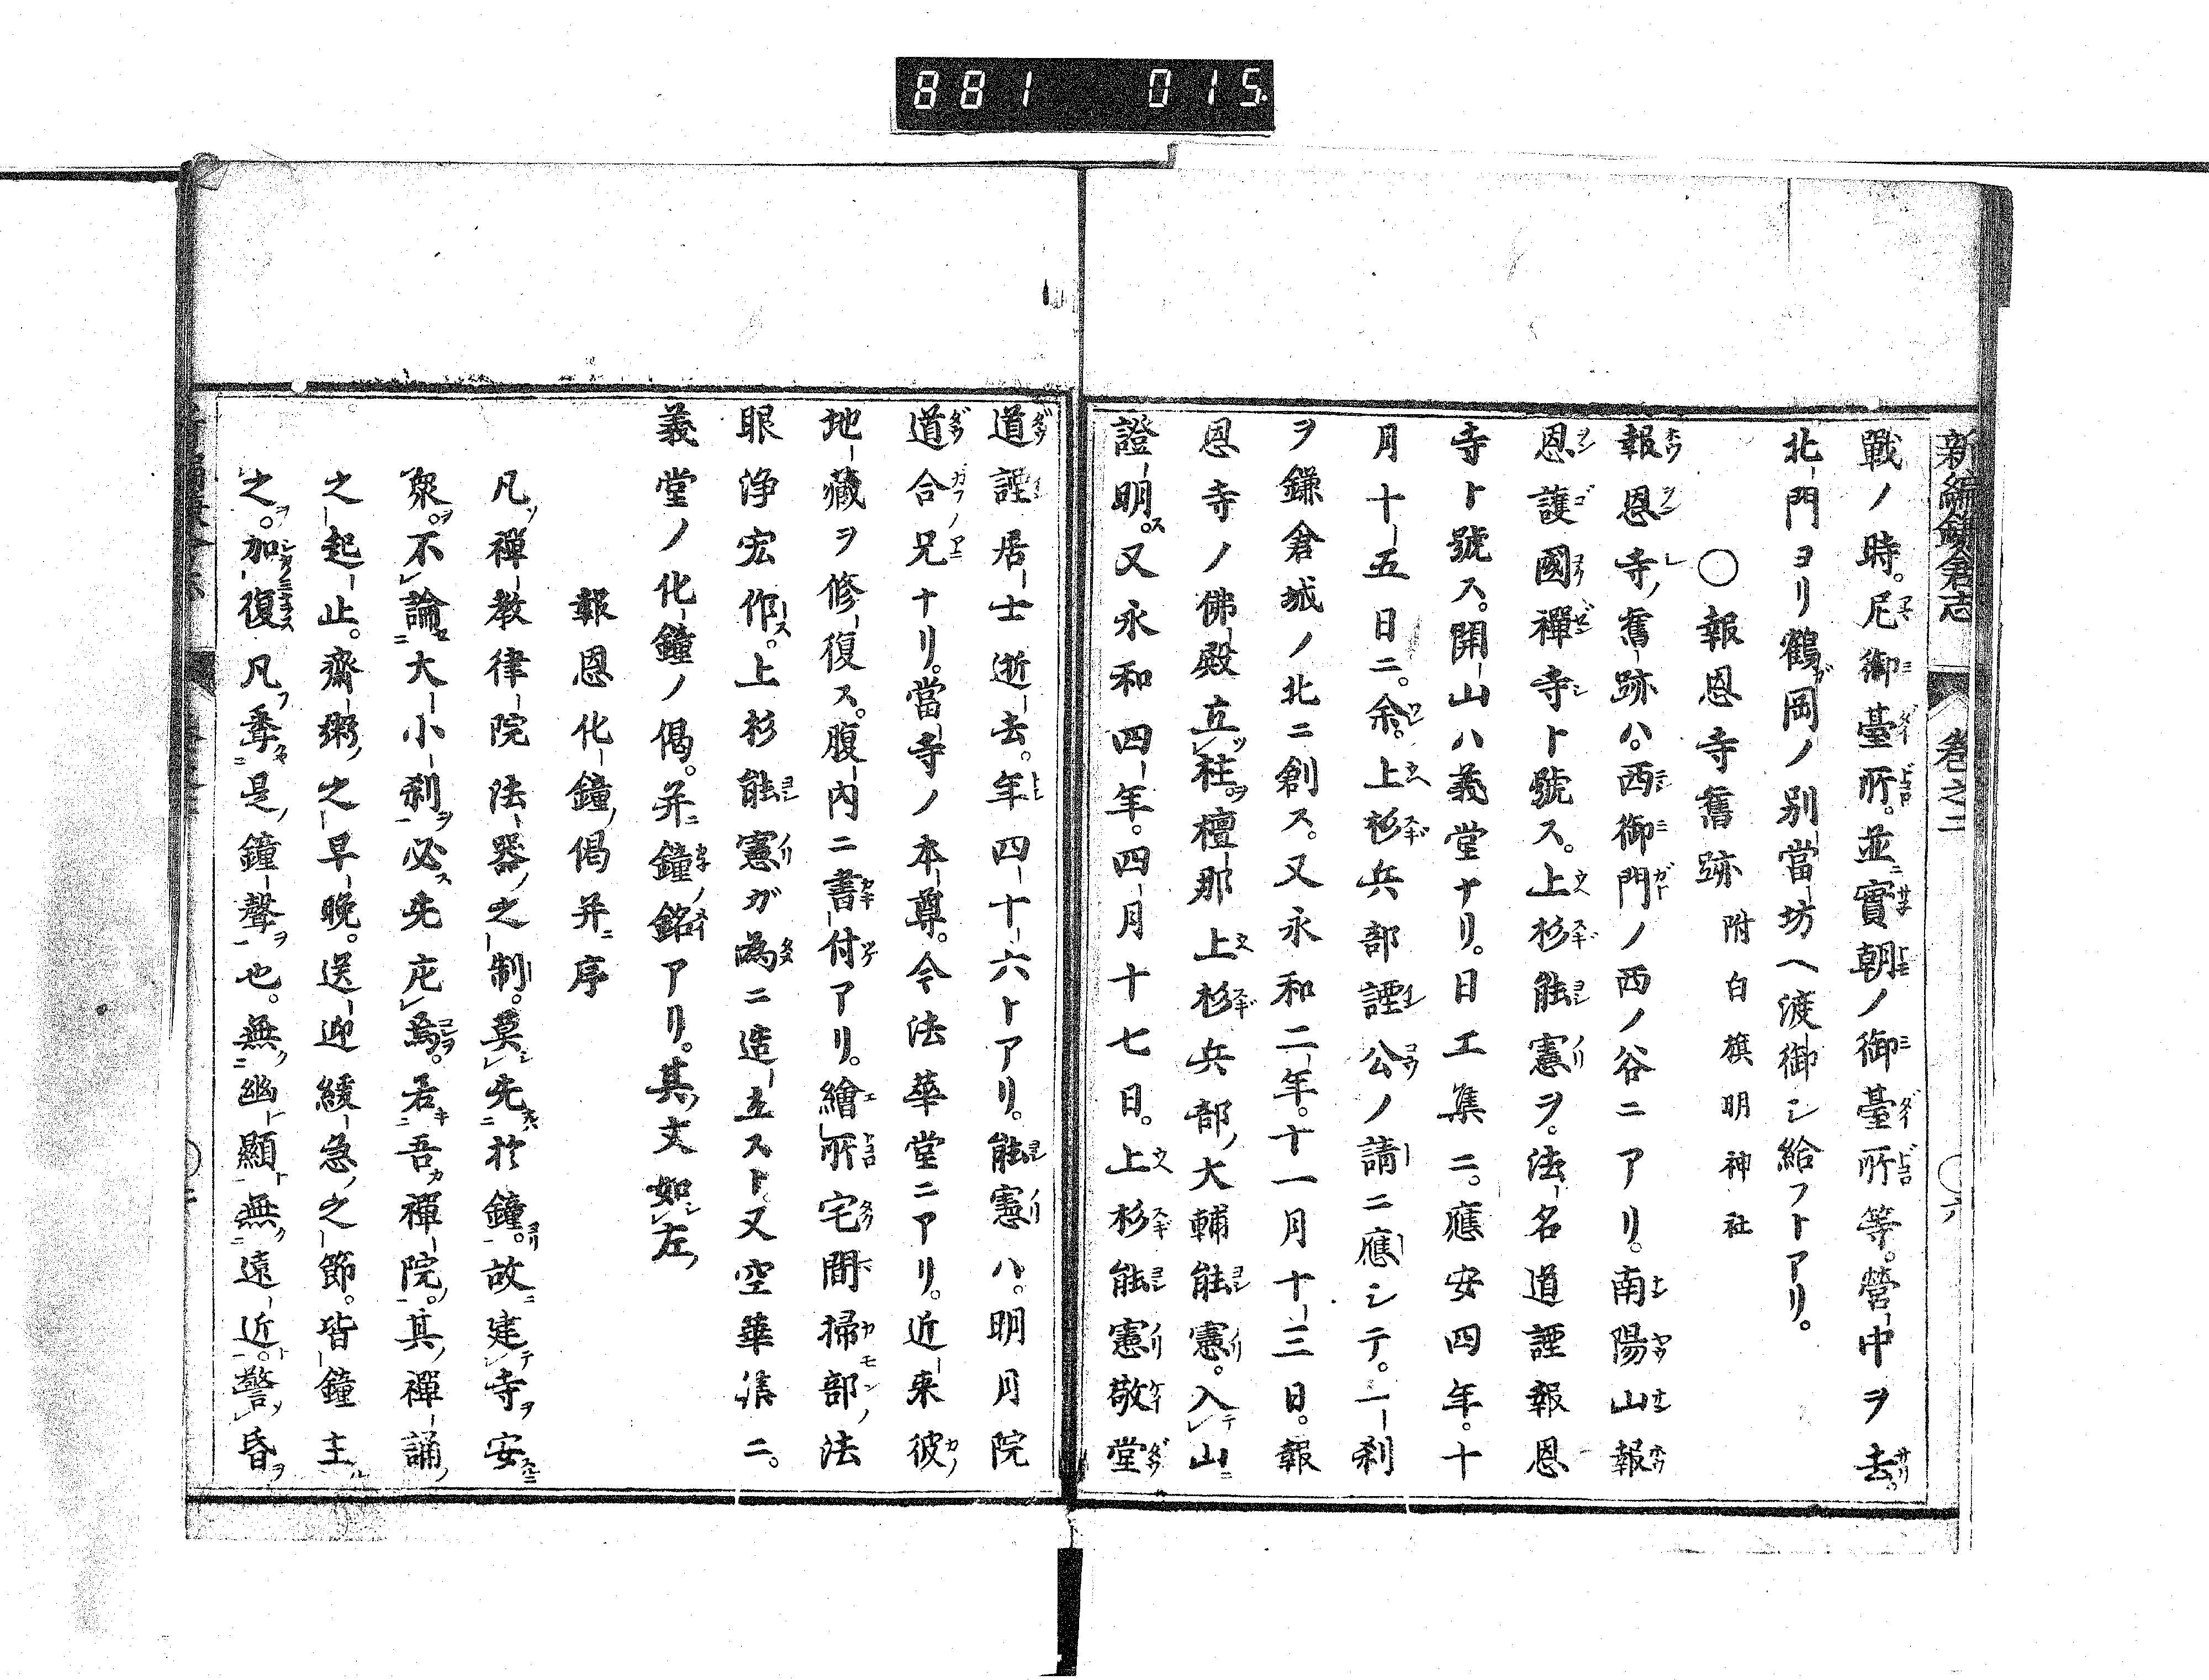 881 015.
新編鎌倉志 卷之二 ○六
戰ノ時。尼御臺所。並實朝ノ御臺所等。營中ヲ去。
北門ヨリ鶴岡ノ別當坊ヘ渡御シ給フトアリ。
○報恩寺舊跡 附白旗明神社
報恩寺ノ舊跡ハ。西御門ノ西ノ谷ニアリ。南陽山報
恩護國禪寺ト號ス。上杉能憲ヲ。法名道諲報恩
寺ト號ス。開山ハ義堂ナリ。日工集ニ。應安四年。十
月十五日ニ。余。上杉兵部諲公ノ請ニ應シテ。一刹
ヲ鎌倉城ノ北ニ創ス。又永和二年。十一月十三日。報
恩寺ノ佛殿立柱。檀那上杉兵部ノ大輔能憲。入山
證明。又永和四年。四月十七日。上杉能憲敬堂
道諲居士逝去。年四十六トアリ。能憲ハ。明月院
道合ノ兄ナリ。當寺ノ本尊。今法華堂ニアリ。近來彼
地藏ヲ修復ス。腹内ニ書付アリ。繪所宅間掃部ノ法
眼浄宏作。上杉能憲ガ為ニ造立スト。又空華集ニ。
義堂ノ化鐘ノ偈。并鐘ノ銘アリ。其文如左
報恩化鐘ノ偈并序
凡禪教律院法器ノ之制。莫先於鐘。故建寺安
衆。不論大小刹必先庀焉。若吾禪院。其禪誦
之起止。齋粥ノ之早晩。送迎緩急ノ之節。皆鐘主
之。加復凡奪是鐘聲也。無幽顯無遠近。警昏